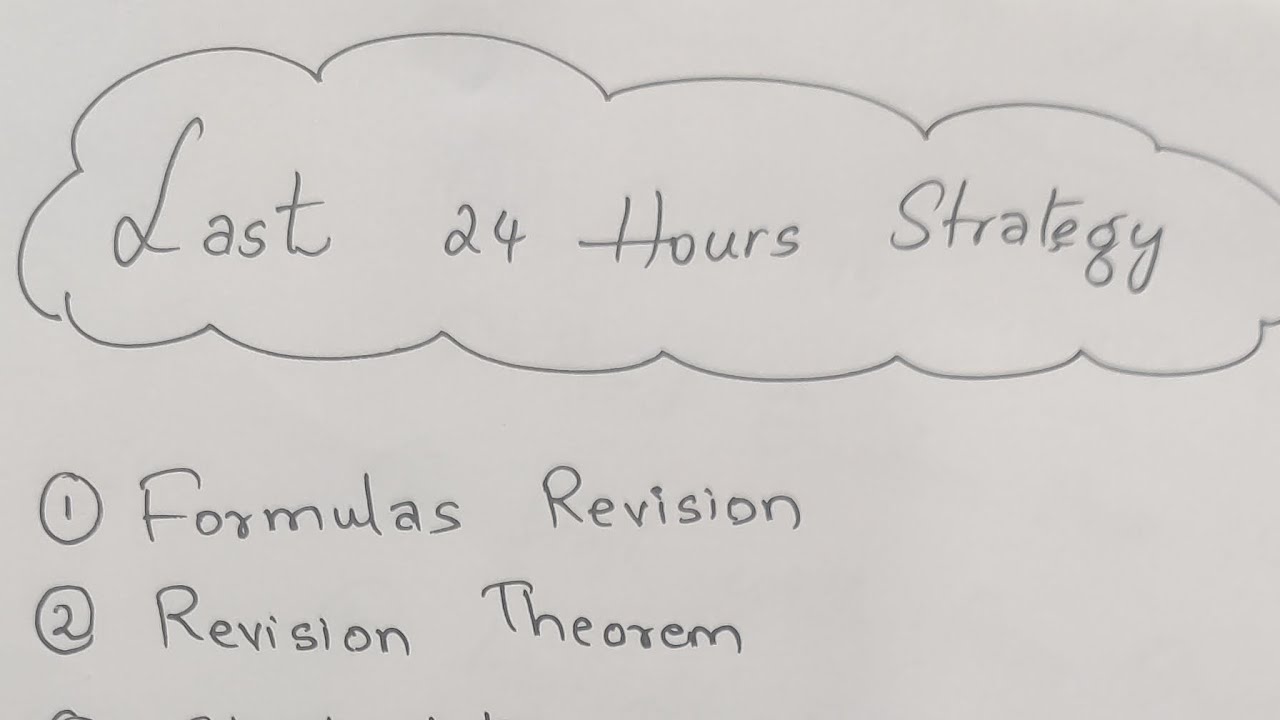 Last 24 Hours Strategy
① Formulas Revision
② Revision Theorem